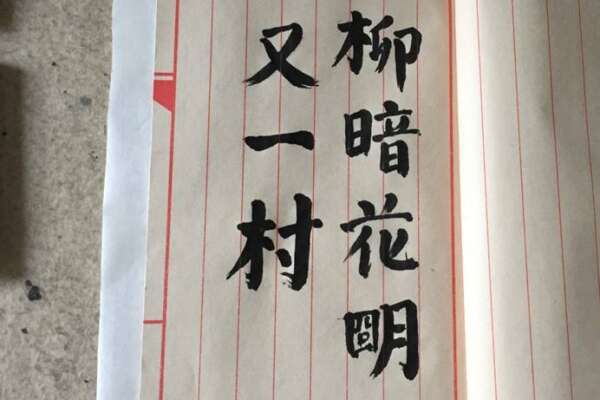 柳暗花朙
又一村